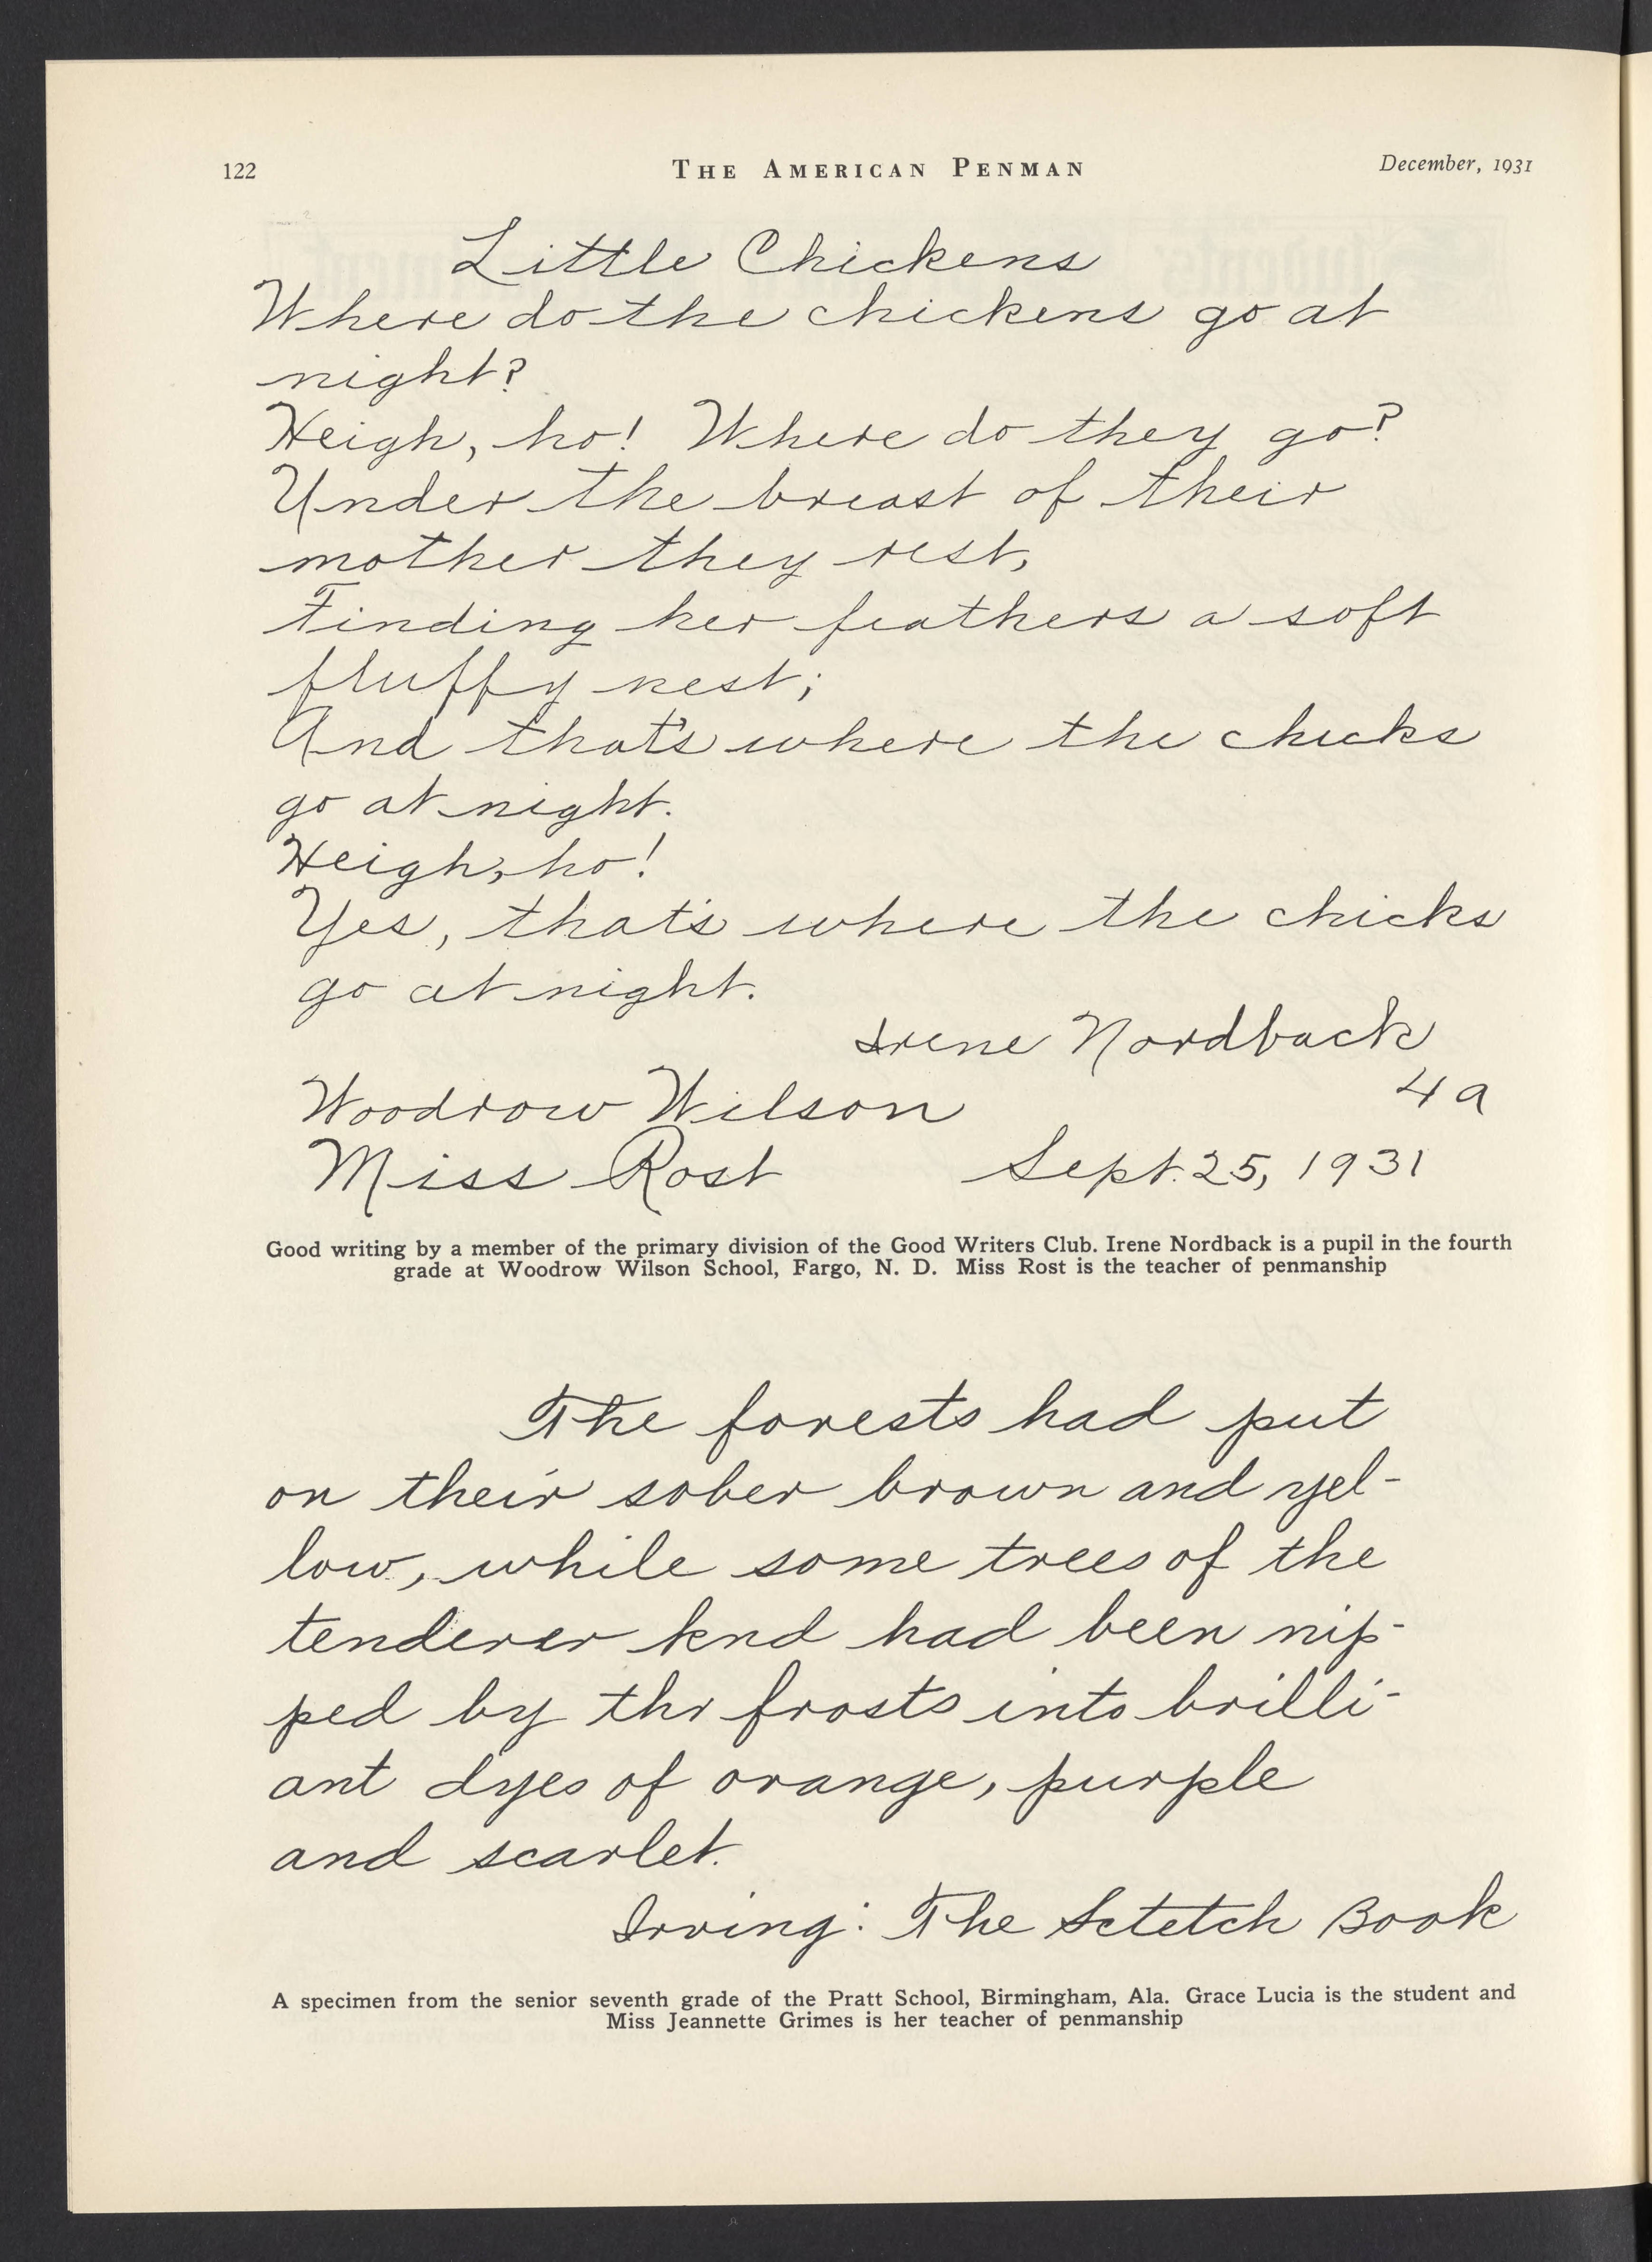 122 THE AMERICAN PENMAN December, 1931
Little Chickens
Where do the chickens go at
night?
Heigh, ho! Where do they go?
Under the breast of their
mother they rest,
Finding her feathers a soft
fluffy nest;
And that's where the chicks
go at night.
Heigh, ho!
Yes, that's where the chicks
go at night.
Irene Nordback
4a
Woodrow Wilson
Miss Rost Sept. 25, 1931
Good writing by a member of the primary division of the Good Writers Club. Irene Nordback is a pupil in the fourth
grade at Woodrow Wilson School, Fargo, N. D. Miss Rost is the teacher of penmanship
The forests had put
on their sober brown and yel-
low, while some trees of the
tenderer knd had been nip-
ped by thr frosts into brilli-
ant dyes of orange, purple
and scarlet.
Irving: The Sctetch Book
A specimen from the senior seventh grade of the Pratt School, Birmingham, Ala. Grace Lucia is the student and
Miss Jeannette Grimes is her teacher of penmanship